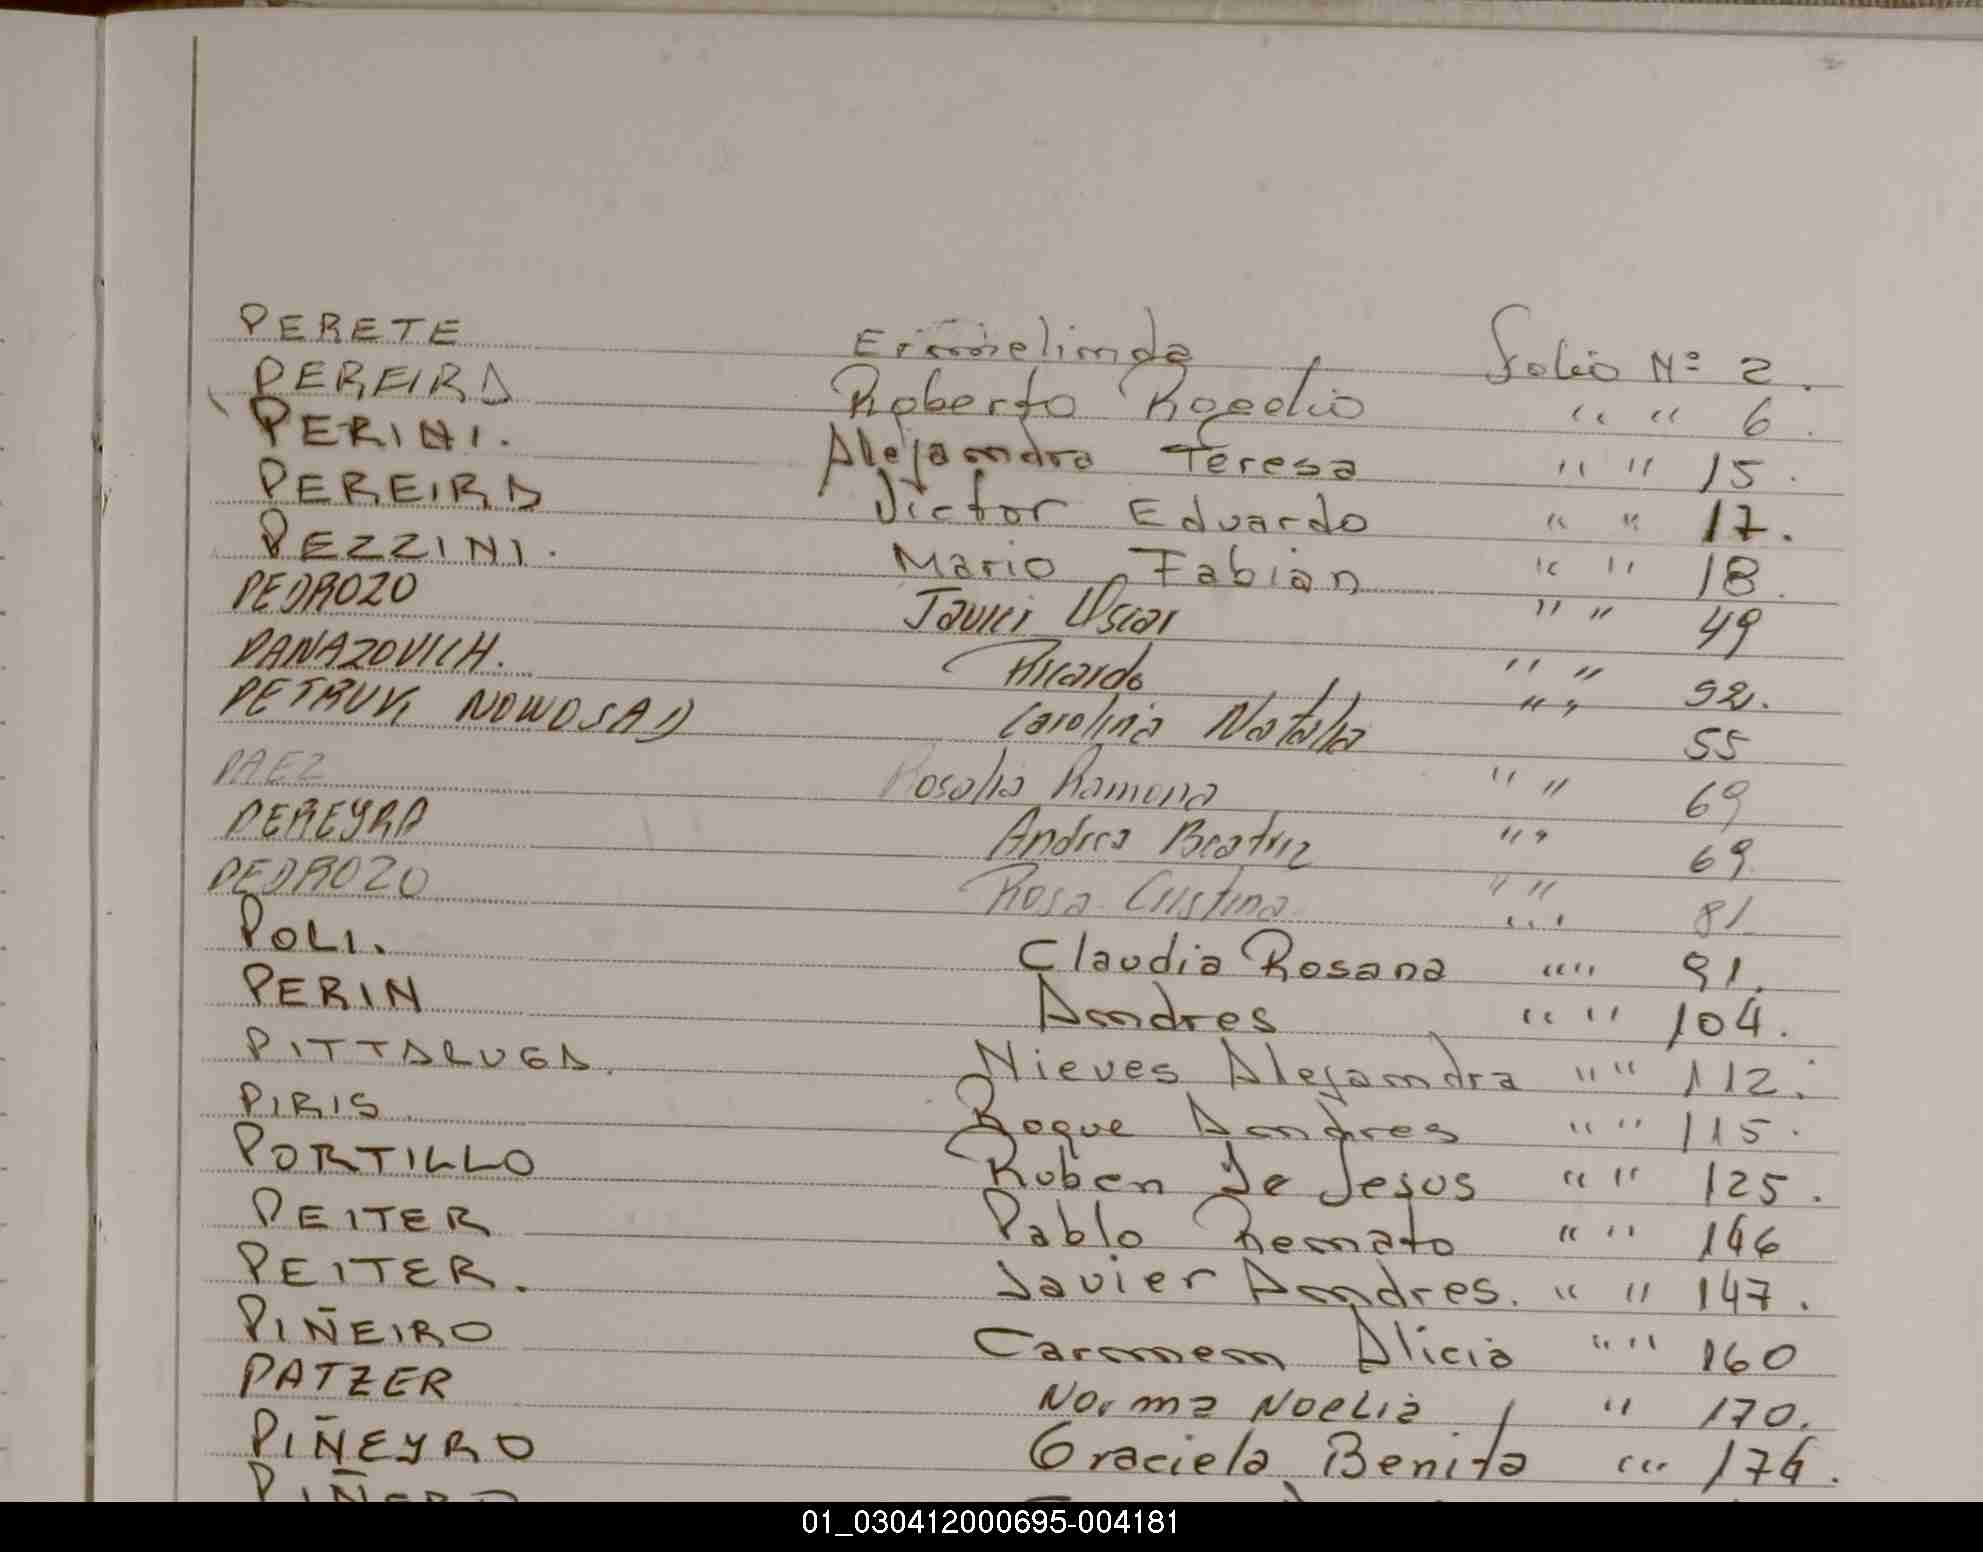 PERETE Ermelinda Folio Nº 2.
PEREIRA Roberto Rogelio " " 6.
PERINI. Alejandra Teresa " " 15.
PEREIRA Victor Eduardo " " 17.
PEZZINI. Mario Fabian " " 18.
PEDROZO Javier Oscar " " 49
PANAZOVICH. Ricardo " " 52.
PETRUK NOWOSAD Carolina Natalia " " 55
PAEZ Rosalia Ramona " " 69
PEREYRA Andrea Beatriz " " 69
PEDROZO Rosa Cristina " " 81
POLI. Claudia Rosana " " 91.
PERIN Andres " " 104.
PITTALUGA. Nieves Alejandra " " 112.
PIRIS Roque Andres " " 115.
PORTILLO Ruben De Jesus " " 125.
PEITER Pablo Renato " " 146
PEITER. Javier Andres. " " 147.
PIÑEIRO Carmen Alicia " " 160
PATZER Norma Noelia " 170.
PIÑEYRO Graciela Benita " " 174.
01_030412000695-004181